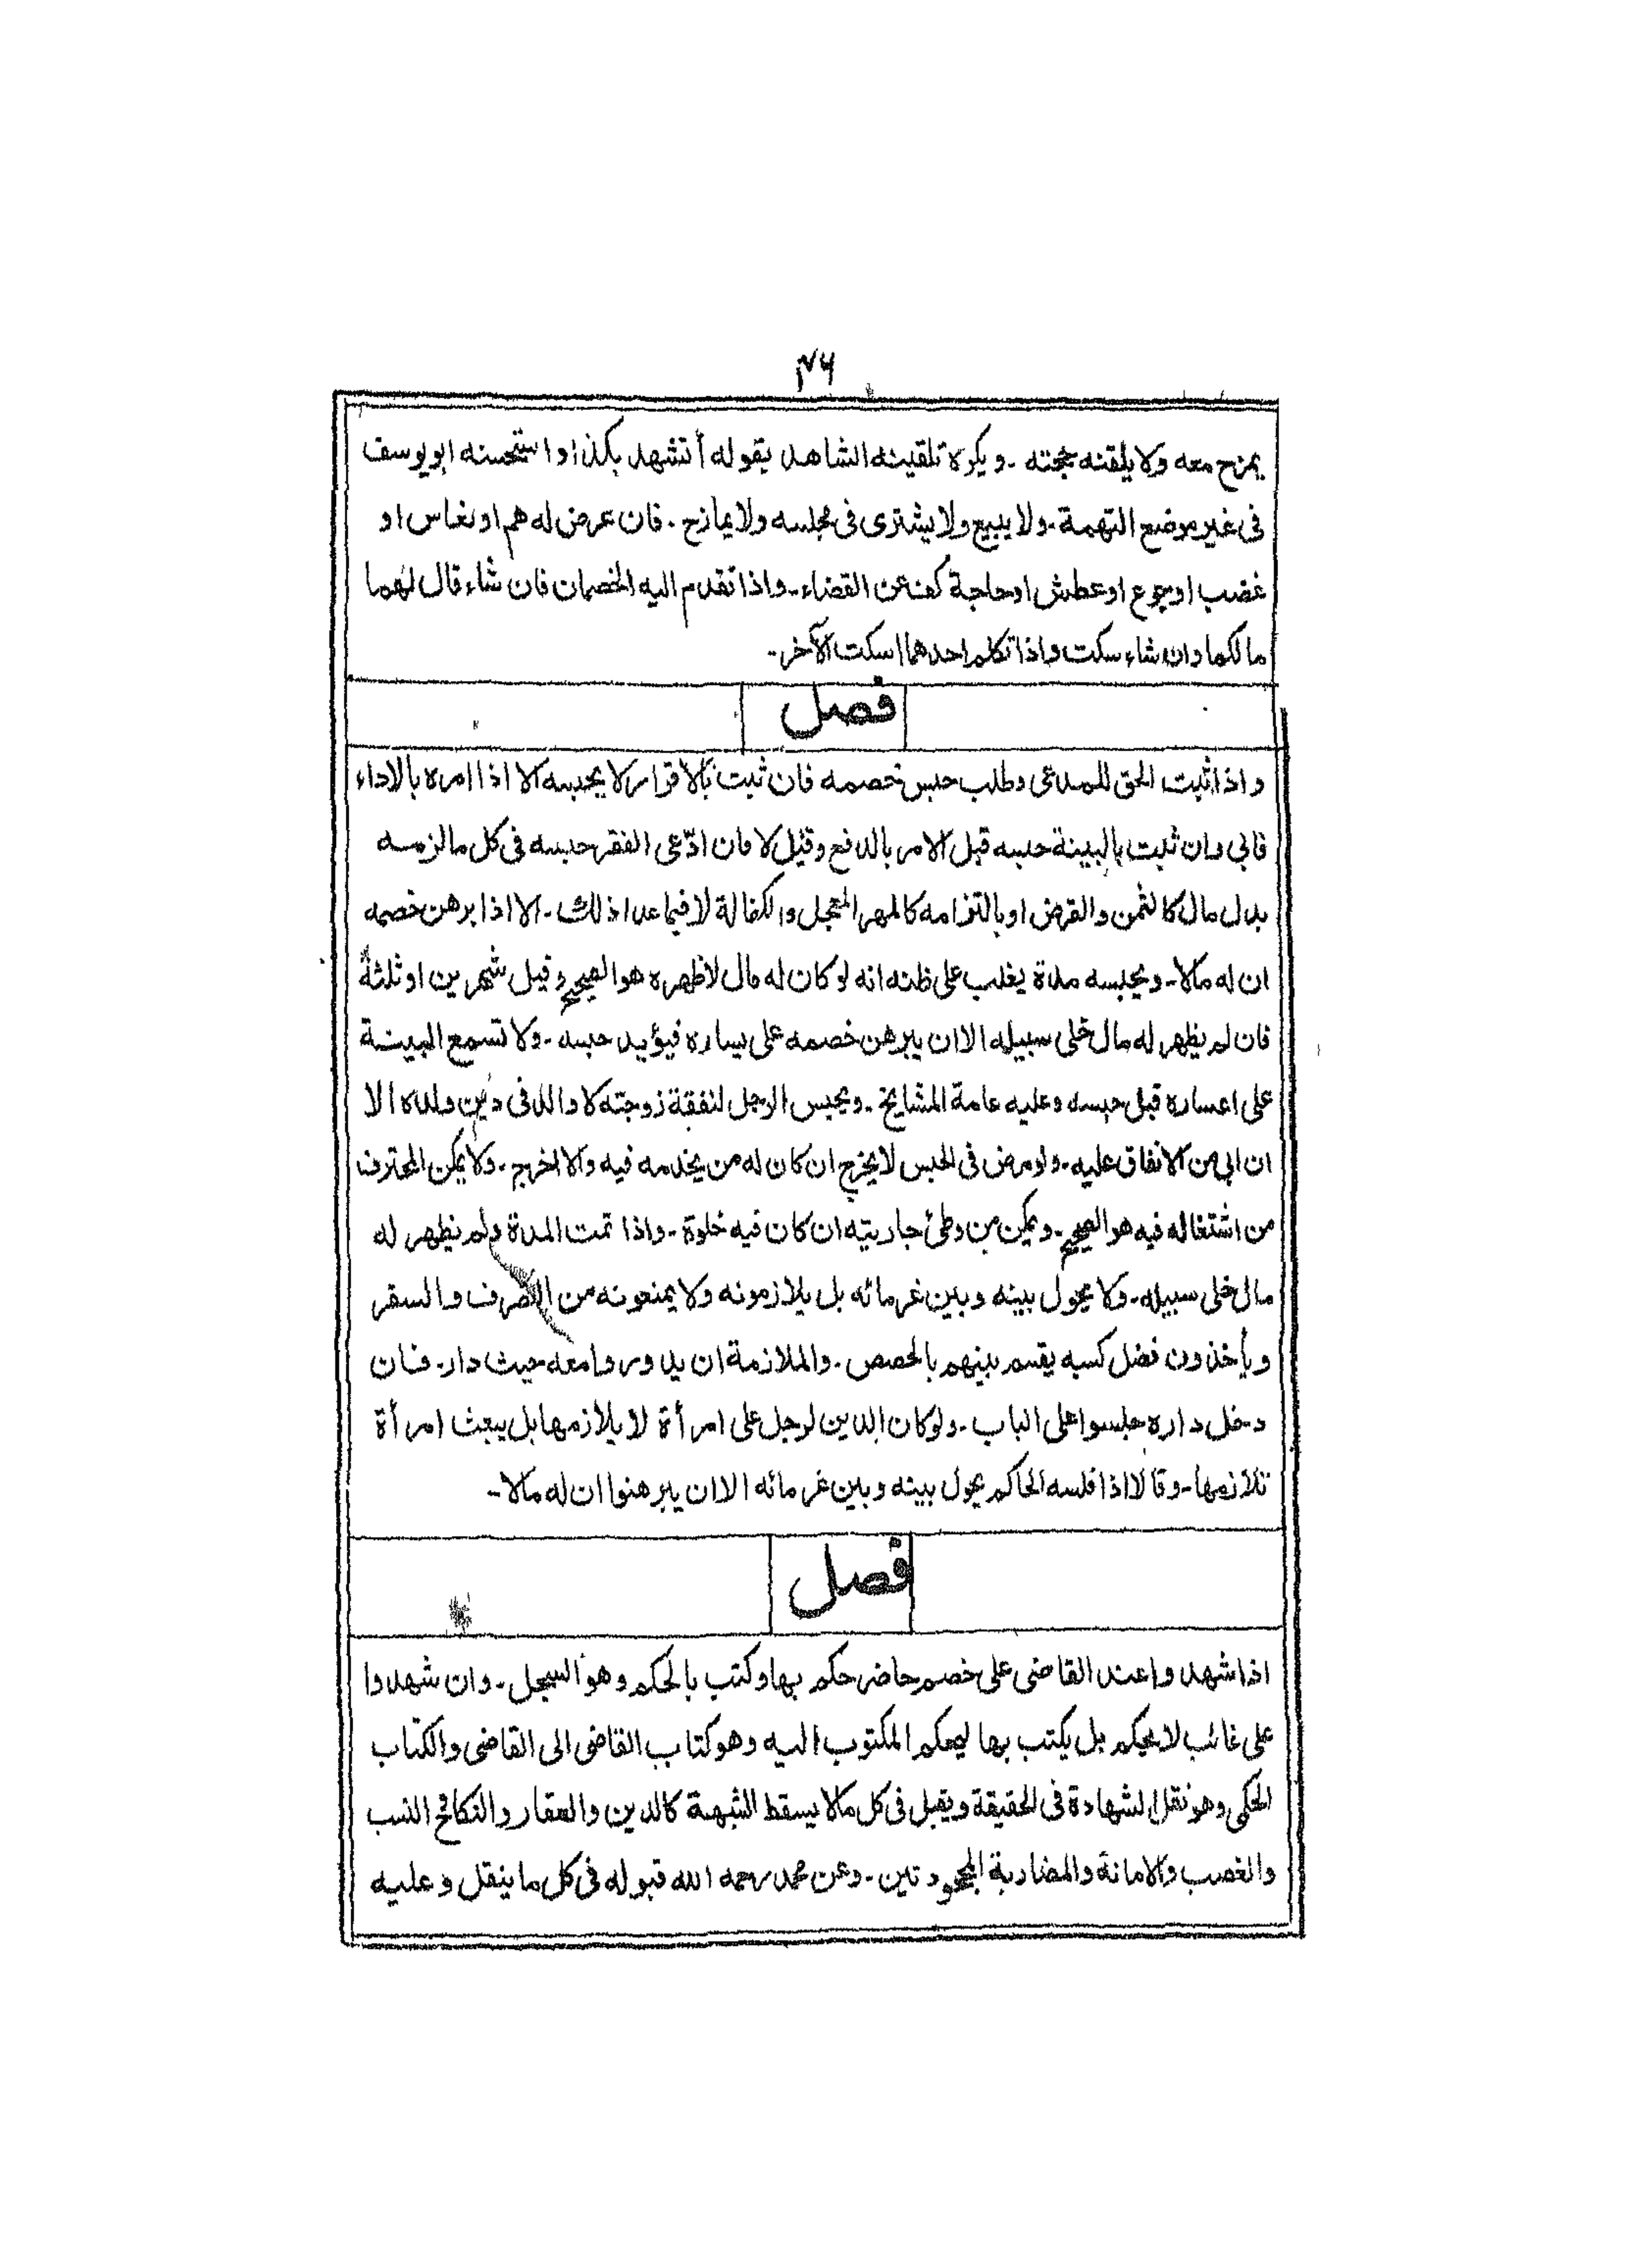 ٣٦
يمزح معه ولا يلقنه حجته - ويكره تلقينه الشاهد بقوله أتشهد بكذا واستحسنه ابو يوسف
فى غير موضع التهمة - ولا يبيع ولا يشترى فى مجلسه ولا يمازح - فان عرض له هم او نعاس او
غضب او جوع او عطش او حاجة كف عن القضاء - واذا تقدم اليه الخصمان فان شاء قال لهما
مالكما وان شاء سكت واذا تكلم احدهما اسكت الآخر -
فصل
واذا ثبت الحق للمدعى وطلب حبس خصمه فان ثبت بالاقرار لا يحبسه الا اذا امره بالاداء
فابى وان ثبت بالبينة حبسه قبل الامر بالدفع وقيل لا فان ادّعى الفقر حبسه فى كل ما لزمه
بدل مال كالثمن والقرض او بالتزامه كالمهر المعجل والكفالة لا فيما عدا ذلك - الا اذا برهن خصمه
ان له مالا - ويحبسه مدة يغلب على ظنه انه لو كان له مال لاظهره هو الصحيح وقيل شهرين او ثلثة
فان لم يظهر له مال خلى سبيله الا ان يبرهن خصمه على يساره فيؤبد حبسه - ولا تسمع البينة
على اعساره قبل حبسه وعليه عامة المشايخ - ويحبس الرجل لنفقة زوجته لا والد فى دين ولده الا
ان ابى من الانفاق عليه - ولو مرض فى الحبس لا يخرج ان كان له من يخدمه فيه والا اخرج - ولا يمكن المحترف
من اشتغاله فيه هو الصحيح - ويمكن من وطئ جاريته ان كان فيه خلوة - واذا تمت المدة ولم يظهر له
مال خلى سبيله - ولا يحول بينه وبين غرمائه بل يلازمونه ولا يمنعونه من التصرف والسفر
ويأخذون فضل كسبه يقسم بينهم بالحصص - والملازمة ان يدوروا معه حيث دار - فان
دخل داره جلسوا على الباب - ولو كان الدين لرجل على امرأة لا يلازمها بل يبعث امرأة
تلازمها - وقالا اذا فلسه الحاكم يحول بينه وبين غرمائه الا ان يبرهنوا ان له مالا -
فصل
اذا شهدوا عند القاضى على خصم حاضر حكم بها وكتب بالحكم وهو السجل - وان شهدوا
على غائب لا يحكم بل يكتب بها ليحكم المكتوب اليه وهو كتاب القاضى الى القاضى والكتاب
الحكمى وهو نقل الشهادة فى الحقيقة ويقبل فى كل ما لا يسقط الشبهة كالدين والعقار والنكاح والنسب
والغصب والامانة والمضاربة المجحودتين - وعن محمد رحمه الله قبوله فى كل ما ينقل وعليه